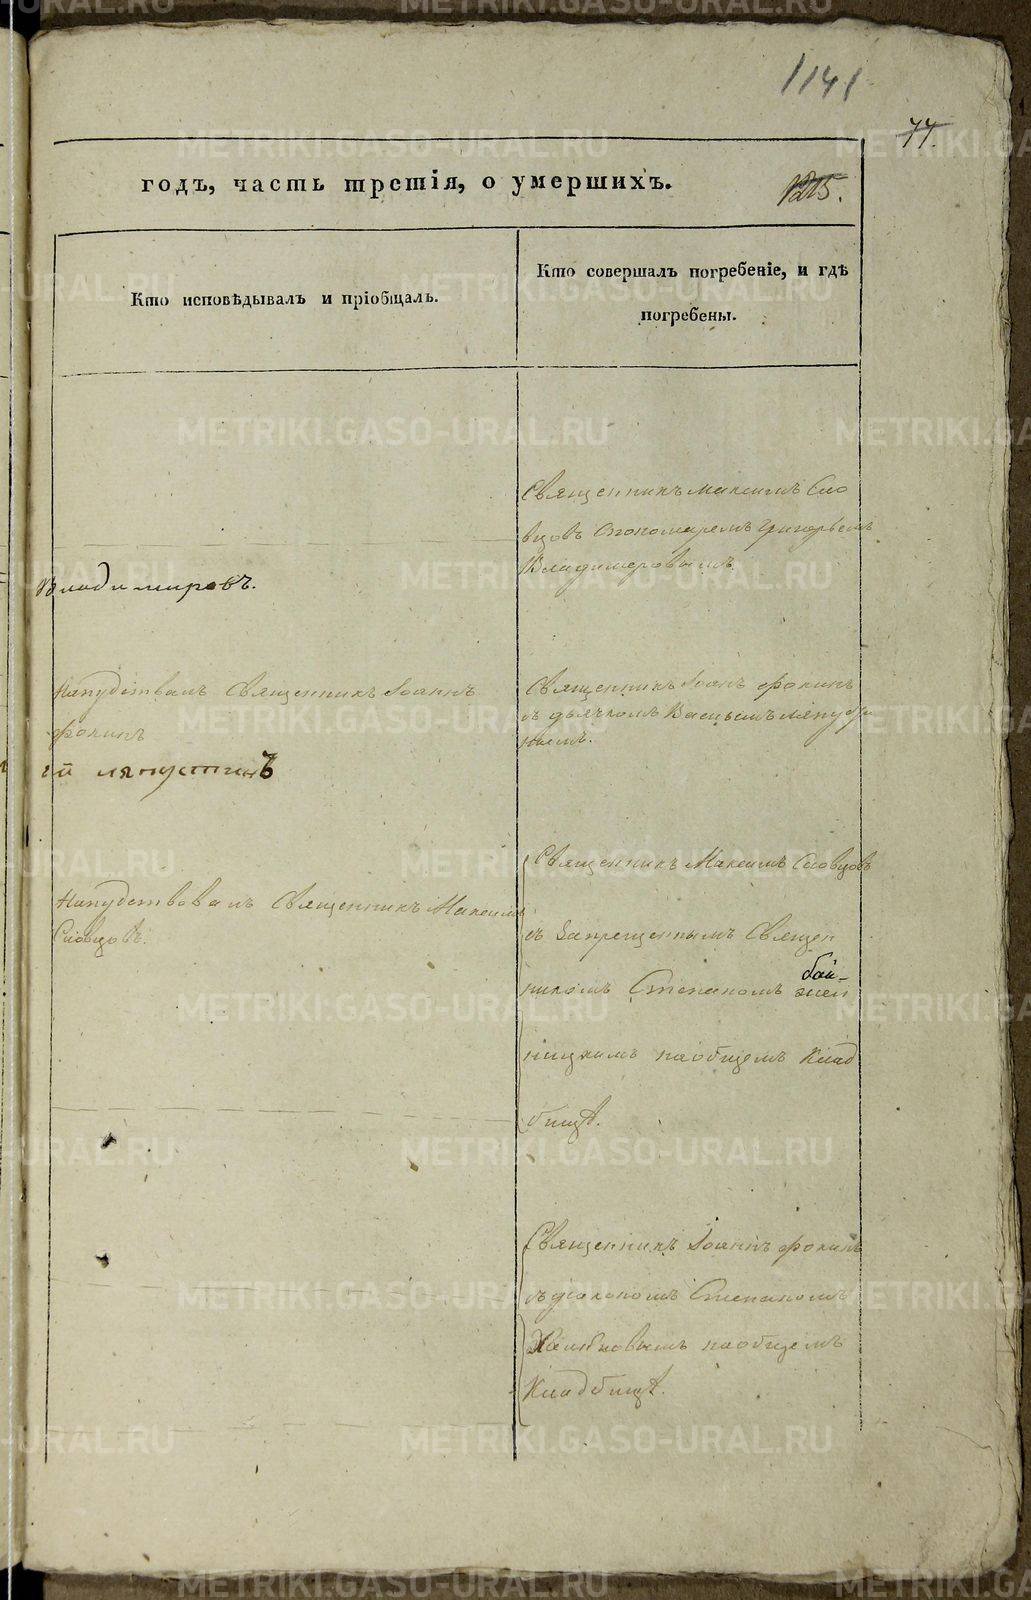 1141
77.
годъ, часть третія, о умершихъ.
1215.
Кто исповѣдывалъ и пріобщалъ.
Кто совершалъ погребеніе, и гдѣ
погребены.
Священникъ Максимъ Сло
вцовъ Спономаремъ Григорьемъ
Владимеровымъ
Владимировъ.
Напудствалъ Священникъ Іоаннъ
Фокинъ
ій ляпустинъ
Священникъ Іоанъ Фокинъ
съ дьячкомъ
нымъ.
Напудствовалъ Священникъ Максимъ
Словцовъ.
Священникъ Максимъ Словцовъ
съ Запрещеннымъ Священ
никомъ Степаномъ
наобщемъ Клад
бищѣ.
Священникъ Іоаннъ Фокинъ
съ діакономъ Степаномъ
наобщемъ
Кладбищѣ.
METRIKI.GASO-URAL.RU